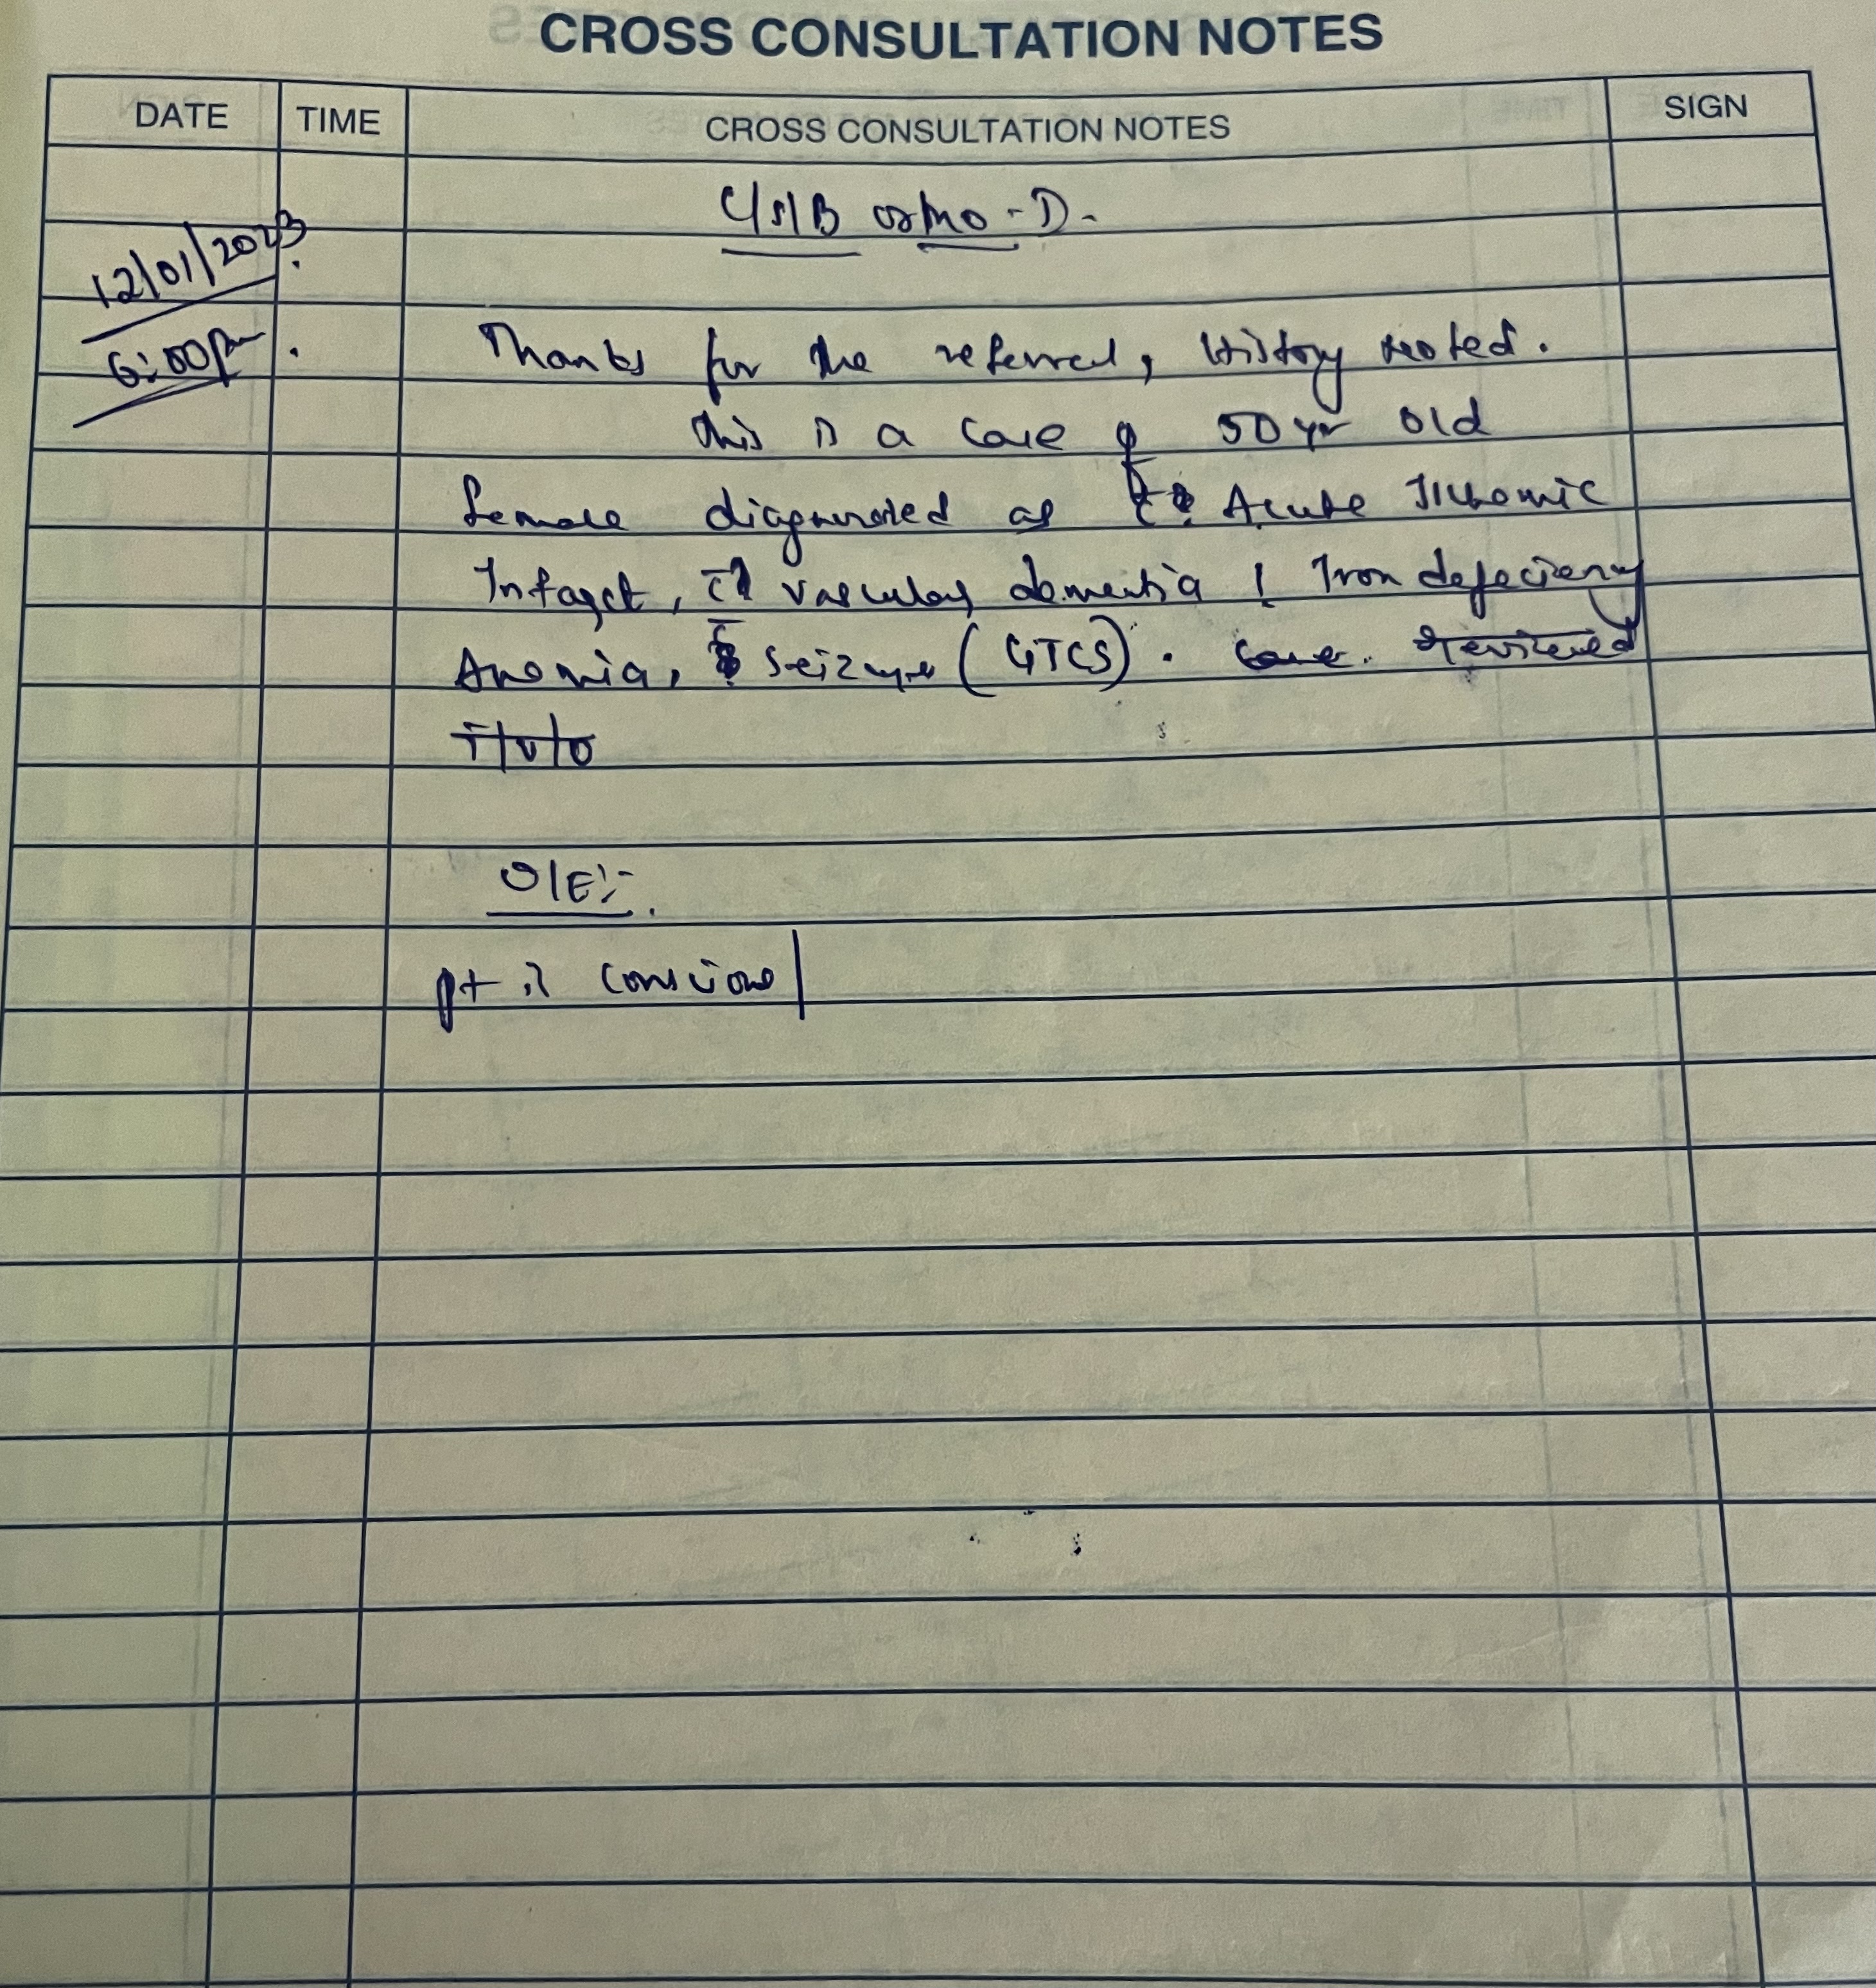 CROSS CONSULTATION NOTES
DATE TIME CROSS CONSULTATION NOTES SIGN
C/S/B ortho - D.
12/01/2023
6:00pm
Thanks for the referral, History noted.
this is a case of 50 yr old
female diagnosed as Acute Ischemic
Infarct, vascular dementia Iron deficiency
Anemia, Seizure (GTCS). Case reviewed
O/E:-
pt is conscious